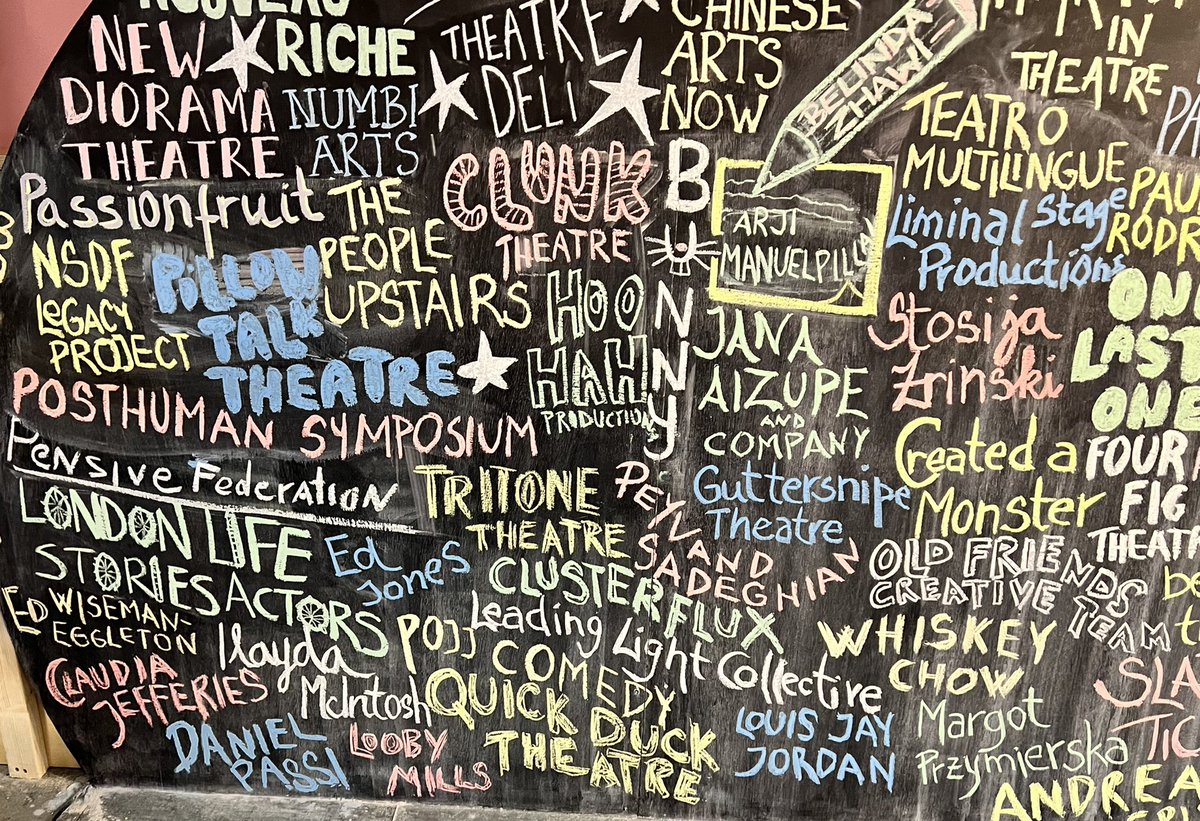 NOUVEAU
RICHE
NEW
DIORAMA
THEATRE
NUMBI
ARTS
THEATRE
DELI
CHINESE
ARTS
NOW
BELINDA
ZHAWI
IN
THEATRE
TEATRO
MULTILINGUE
Passionfruit
THE
PEOPLE
UPSTAIRS
CLUNK
THEATRE
BUNNY
ARJI
MANUELPILLAI
Liminal Stage
Productions
NSDF
LEGACY
PROJECT
PILLOW
TALK
THEATRE
HOO
HAH
PRODUCTIONS
JANA
AIZUPE
AND
COMPANY
Stosija
Zrinski
ON
LAST
ONE
POSTHUMAN SYMPOSIUM
Pensive Federation
TRITONE
THEATRE
PEYVAND
SADEGHIAN
Guttersnipe
Theatre
Created a
Monster
FOUR
FIG
THEAT
LONDON LIFE
STORIES ACTORS
Ed
Jones
CLUSTER FLUX
OLD FRIENDS
CREATIVE
TEAM
ED WISEMAN-
EGGLETON
Ilayda
McIntosh
POJJ
COMEDY
Leading
Light Collective
WHISKEY
CHOW
CLAUDIA
JEFFERIES
QUICK DUCK
THEATRE
LOUIS JAY
JORDAN
Margot
Przymierska
DANIEL
PASSI
LOOBY
MILLS
SLA
TIC
ANDREA